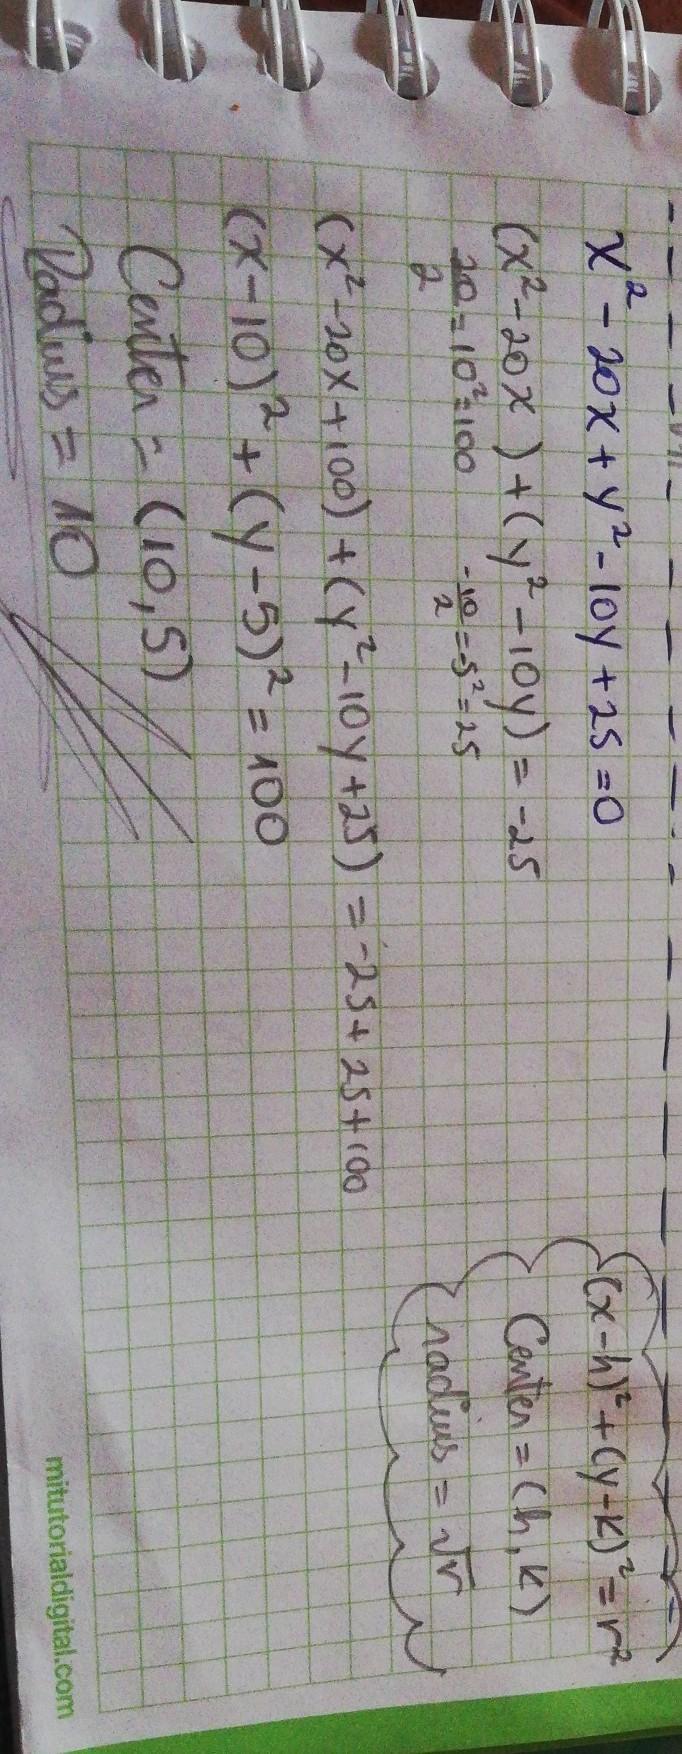 x² - 20x + y² - 10y + 25 = 0
(x² - 20x) + (y² - 10y) = -25
20/2 = 10² = 100 -10/2 = -5² = 25
(x² - 20x + 100) + (y² - 10y + 25) = -25 + 25 + 100
(x - 10)² + (y - 5)² = 100
Center = (10, 5)
Radius = 10
(x - h)² + (y - k)² = r²
Center = (h, k)
radius = √r
mitutorialdigital.com